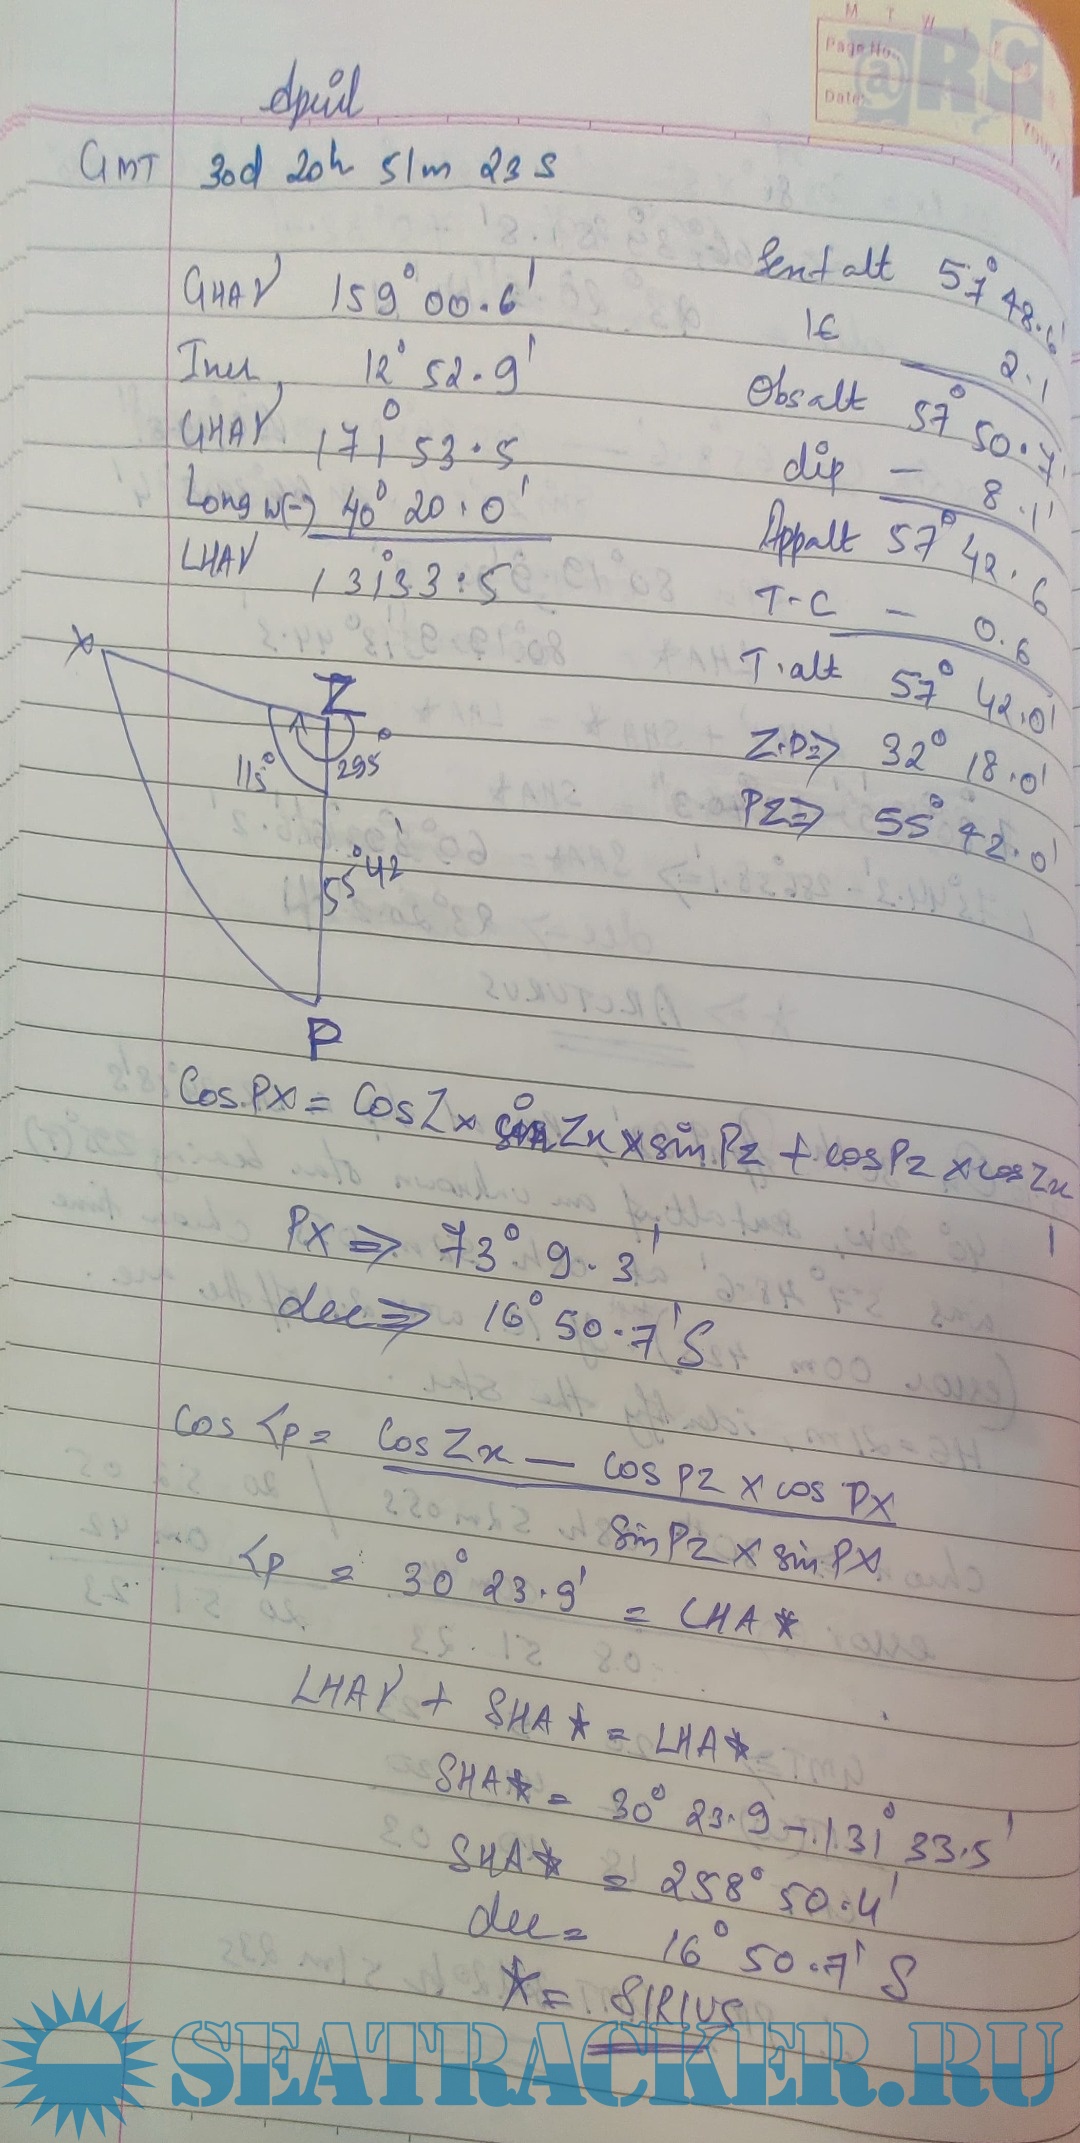 M T W T
Page No.:
Date:
YOUVA
@RC
April
GMT 30d 20h 51m 23s
GHAϒ 159° 00.6'
Incr, 12° 52.9'
GHAϒ. 171° 53.5
Long w(-) 40° 20.0'
LHAϒ 131°33.5
Sext alt 57° 48.6'
IE 2.1
Obsalt 57° 50.7'
dip - 8.1'
Appalt 57° 42.6
T.C - 0.6
T.alt 57° 42.0'
Z.D⇒ 32° 18.0'
PZ⇒ 55° 42.0'
X
Z
A
115°
295°
55° 42'
P
Cos PX = Cos Z x sin Zx x sin Pz + cos Pz x cos Zx
PX ⇒ 73° 9.3'
dec ⇒ 16° 50.7' S
Cos <p = Cos Zx - cos PZ x cos PX
Sin PZ x sin PX
<p = 30° 23.9' = LHA*
LHAϒ + SHA* = LHA*
SHA* = 30° 23.9 - 131° 33.5'
SHA* = 258° 50.4'
dec = 16° 50.7' S
* = SIRIUS
SEATRACKER.RU